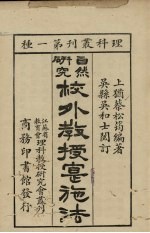 理科叢刊第一種
上猶蔡松筠編著
吳縣吳和士閱訂
自然研究
校外教授實施法
江蘇省教育會理科教授研究會叢刊
商務印書館發行